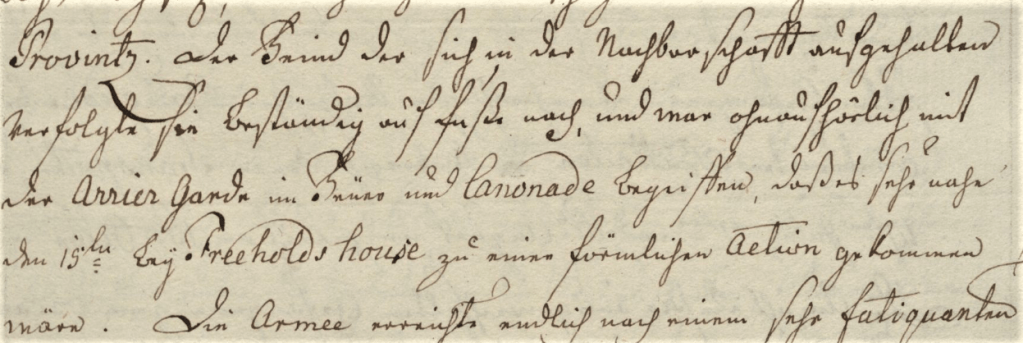 Provintz. Der Feind der sich in der Nachbarschafft aufgehalten
verfolgte sie beständig auf fuße nach, und war ohnaufhörlich mit
der Arrier Garde im Feüer und Canonade begriffen, daß es sehr nahe
den 15ten bey Freeholds house zu einer förmlichen Action gekommen
wäre. Die Armee erreichte endlich nach einem sehr fatiquanten